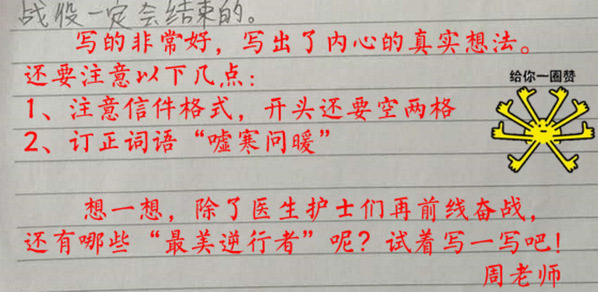 战役一定会结束的。
写的非常好，写出了内心的真实想法。
还要注意以下几点：
给你一圈赞
1、注意信件格式，开头还要空两格
2、订正词语“嘘寒问暖”
想一想，除了医生护士们再前线奋战，
还有哪些“最美逆行者”呢？试着写一写吧！
周老师